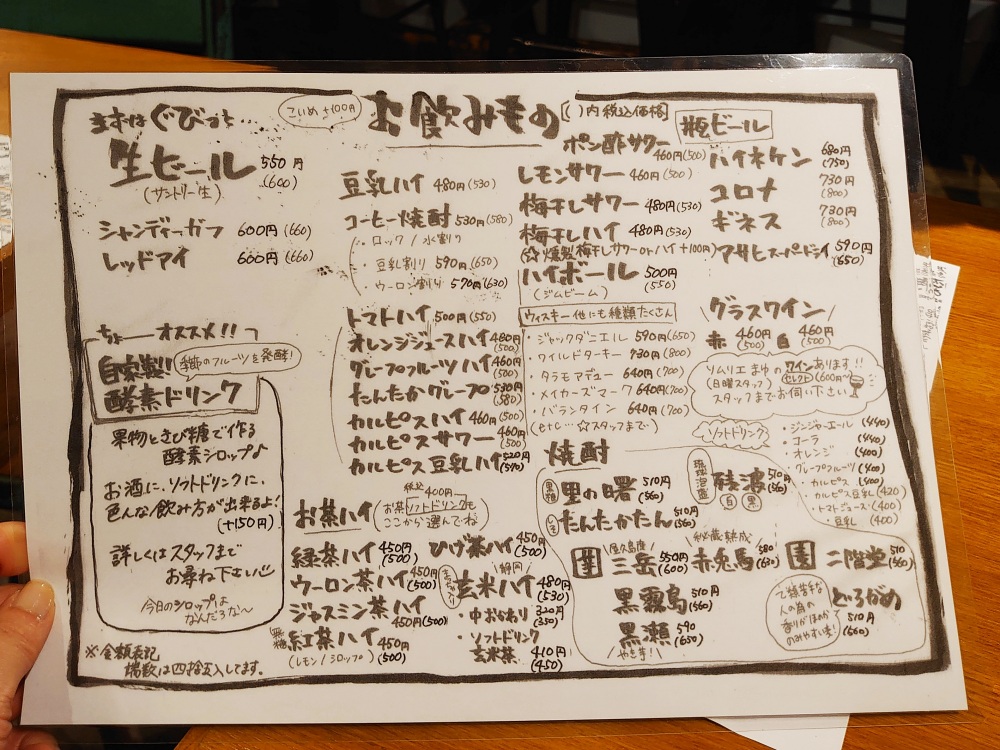 お飲みもの
[( )内税込価格]
こいめ+100円
まずはぐびっと
生ビール 550円(600)
(サントリー生)
シャンディーガフ 600円(660)
レッドアイ 600円(660)
ちょーオススメ!!
自家製!!
季節のフルーツを発酵!
酵素ドリンク
果物ときび糖で作る
酵素シロップ♪
お酒に、ソフトドリンクに、
色んな飲み方が出来るよ!
(+150円)
詳しくはスタッフまで
お尋ね下さい
今日のシロップは
なんだろな〜
※金額表記
端数は四捨五入してます。
豆乳ハイ 480円(530)
コーヒー焼酎 530円(580)
・ロック/水割り
・豆乳割り 590円(650)
・ウーロン割り 570円(630)
トマトハイ 500円(550)
オレンジジュースハイ 460円(500)
グレープフルーツハイ 460円(500)
たんたかグレープ 530円(580)
カルピスハイ 460円(500)
カルピスサワー 460円(500)
カルピス豆乳ハイ 520円(570)
お茶ハイ
税込400円
お茶ソフトドリンクも
ここから選んでね
緑茶ハイ 450円(500)
ウーロン茶ハイ 450円(500)
ジャスミン茶ハイ 450円(500)
無糖 紅茶ハイ 450円(500)
(レモン/シロップ)
ひげ茶ハイ 450円(500)
静岡
玄米ハイ 480円(530)
・中おかわり 320円(350)
・ソフトドリンク
玄米茶 410円(450)
ポン酢サワー 460円(500)
レモンサワー 460円(500)
梅干しサワー 480円(530)
梅干しハイ 480円(530)
(☆燻製梅干しサワーorハイ+100円)
ハイボール 500円(550)
(ジムビーム)
ウィスキー他にも種類たくさん
・ジャックダニエル 590円(650)
・ワイルドターキー 730円(800)
・タラモアデュー 640円(700)
・メイカーズマーク 640円(700)
・バランタイン 640円(700)
(etc…☆スタッフまで)
瓶ビール
ハイネケン 680円(750)
コロナ 730円(800)
ギネス 730円(800)
アサヒスーパードライ 590円(650)
グラスワイン
赤 460円(500) 白 460円(500)
ソムリエまゆのワインあります!!
(日曜スタッフ) セレクト(600円〜)
スタッフまでお伺い下さい
ソフトドリンク
・ジンジャーエール (440)
・コーラ (440)
・オレンジ (400)
・グレープフルーツ (400)
・カルピス (400)
・カルピス豆乳 (420)
・トマトジュース (400)
・豆乳 (400)
焼酎
黒糖 里の曙 510円(560)
しそ たんたかたん 510円(560)
琉球泡盛 残波 510円(560)
白 黒
芋
屋久島産
三岳 550円(600)
秘蔵熟成
赤兎馬 580(630)
黒霧島 510円(560)
黒瀬 590(650)
やき芋!
麦
二階堂 510(560)
どろかめ 510円(560)
で麺苦手な
人の為の
香りがほのか
のみやすい麦!